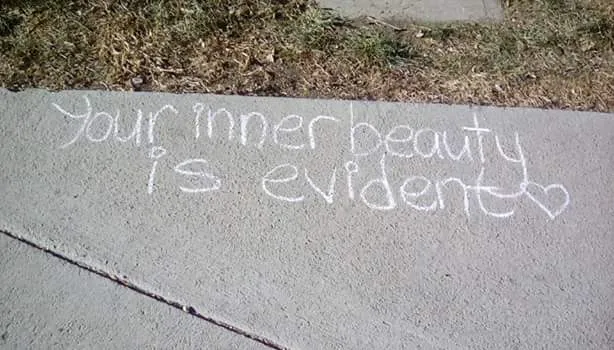 Your inner beauty
is evident♡